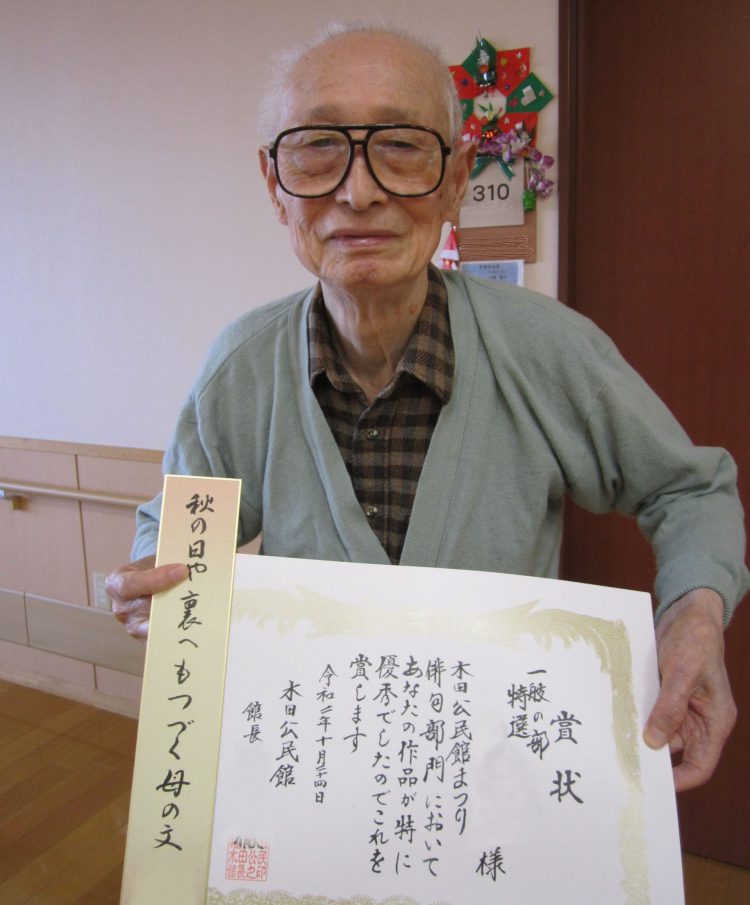 310
賞状
一般の部
特選
様
木田公民館まつり
俳句部門において
あなたの作品が特に
優秀でしたのでこれを
賞します
令和二年十月二十四日
木田公民館
館長
秋の日や裏へもつづく母の文